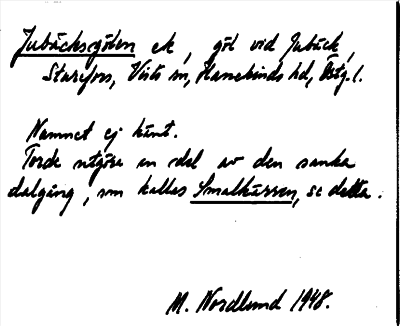 Jubäcksgölen ek, göl vid Jubäck,
Starefors, Vists sn, Hanekinds hd, Östg.l.
Namnet ej känt.
Torde utgöra en del av den sanka
dalgång, som kallas Smalkärren, se detta.
M. Nordlund 1948.